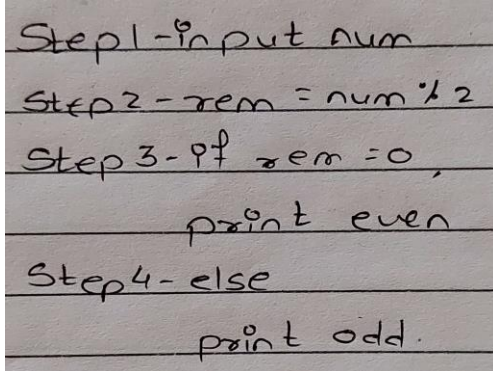 Step1-input num
Step2-rem = num % 2
Step 3-if rem = 0,
print even
Step4-else
print odd.